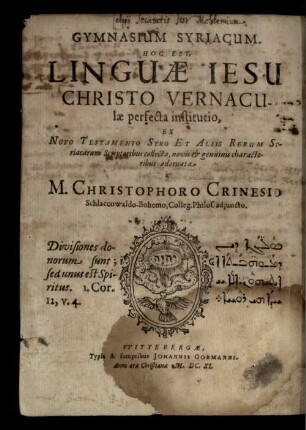 GYMNASIUM SYRIACUM.
HOC EST,
LINGUÆ IESU
CHRISTO VERNACU-
læ perfecta institutio,
EX
NOVO TESTAMENTO SYRO ET ALIIS RERUM SY-
riacarum Scriptoribus collecta, novis & genuinis characte-
ribus adornata
M. CHRISTOPHORO CRINESIO
Schlaccowaldo-Bohemo, Colleg. Philos. adjuncto.
Divisiones do-
norum sunt,
sed unus est Spi-
ritus. 1. Cor.
12, v. 4.
יהוה
WITTEBERGÆ,
Typis & sumptibus JOHANNIS GORMANNI.
Anno æra Christianæ M. DC. XI.